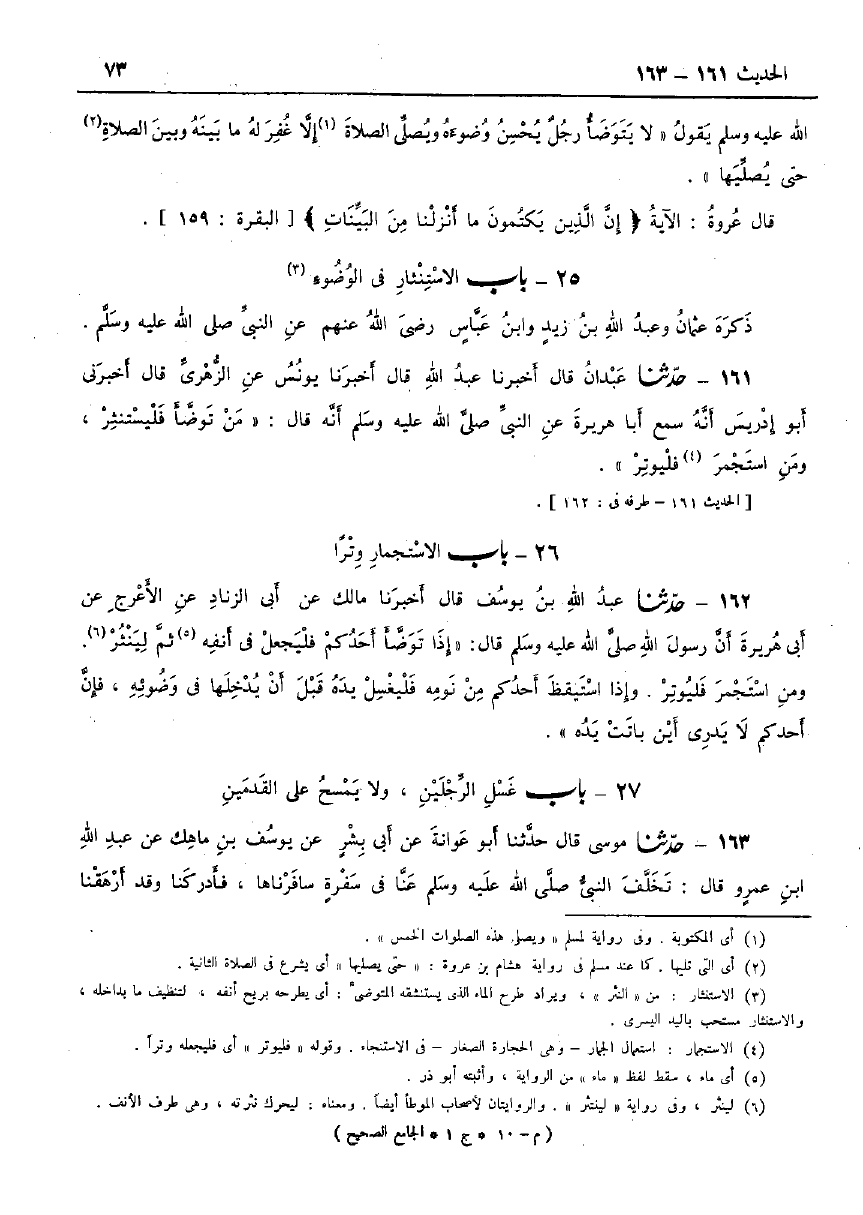 الحديث ١٦١ – ١٦٣ ٧٣
الله عليه وسلم يَقولُ « لا يَتَوَضأُ رجلٌ يُحْسِنُ وُضوءَهُ ويُصلِّى الصلاةَ (١) إلَّا غُفِرَ لهُ ما بَينَهُ وبينَ الصلاةِ (٢)
حتى يُصلِّيَها » .
قال عُروةُ : الآيةُ ﴿ إنَّ الَّذِين يَكتُمونَ ما أَنْزلْنا مِنَ البَيِّنَاتِ ﴾ [ البقرة : ١٥٩ ] .
٢٥ – باب الاسْتِنْثارِ فى الوُضُوءِ (٣)
ذَكرَهَ عثمانُ وعبدُ اللهِ بنُ زيدٍ وابنُ عَبَّاسٍ رضىَ اللهُ عنهم عنِ النبىِّ صلى الله عليه وسَلَّم .
١٦١ – حدّثنا عَبْدانُ قال أخبرنا عبدُ اللهِ قال أخبرَنا يونُسُ عنِ الزُّهْرىِّ قال أخبرَنى
أَبو إدْريسَ أنَّهُ سمع أبا هريرةَ عنِ النبىِّ صلىَّ الله عليه وسَلم أنَّه قال : « مَنْ تَوضَّأَ فَلْيسْتنثِرْ ،
ومَنِ استَجْمرَ (٤) فلْيوتِرْ » .
[ الحديث ١٦١ – طرفه فى : ١٦٢ ] .
٢٦ – باب الاسْتجمارِ وِتْرًا
١٦٢ – حدّثنا عبدُ اللهِ بنُ يوسُف قال أخبرَنا مالك عن أبى الزنادِ عنِ الأَعْرجِ عن
أبى هُريرةَ أنَّ رسولَ اللهِ صلىَّ الله عليه وسَلم قال: « إذَا تَوَضَّأَ أَحَدُكمْ فلْيَجعلْ فى أنفِه (٥) ثمَّ لِيَنْثُرْ (٦).
ومنِ اسْتَجْمَرَ فَليُوتِرْ . وإذا اسْتَيقظَ أحدُكم مِنْ نَومِه فَليغْسِلْ يدَهُ قَبْلَ أَنْ يُدْخِلَها فى وَضُوئِهِ ، فإنَّ
أحدكم لَا يَدرِى أَيْن باتَتْ يَدُه » .
٢٧ – باب غَسْلِ الرِّجْلَيْنِ ، ولا يَمْسحُ على القَدمَينِ
١٦٣ – حدّثنا موسى قال حدَّثنا أبو عَوانةَ عن أبى بِشْرٍ عن يوسُف بنِ ماهِك عن عبدِ اللهِ
ابنِ عمرٍو قال : تَخَلَّفَ النبىُّ صلَّى الله علَيه وسَلم عَنَّا فى سَفْرةٍ سافَرْناها ، فأَدركَنا وقد أَرْهَقْنا
(١) أى المكتوبة . وفى رواية لمسلم « ويصلى هذه الصلوات الخمس » .
(٢) أى التى تليها . كما عند مسلم فى رواية هشام بن عروة : « حتى يصليها » أى يشرع فى الصلاة الثانية .
(٣) الاستنثار : من « النثر » ، ويراد طرح الماء الذى يستنشقه المتوضئ : أى يطرحه بريح أنفه ، لتنظيف ما بداخله ،
والاستنثار مستحب باليد اليسرى .
(٤) الاستجمار : استعمال الجمار – وهى الحجارة الصغار – فى الاستنجاء . وقوله « فليوتر » أى فليجعله وتراً .
(٥) أى ماء ، سقط لفظ « ماء » من الرواية ، وأثبته أبو ذر .
(٦) لينثر ، وفى رواية « لينتثر » . والروايتان لأصحاب الموطأ أيضاً . ومعناه : ليحرك نثرته ، وهى طرف الأنف .
( م – ١٠ * ج ١ * الجامع الصحيح )